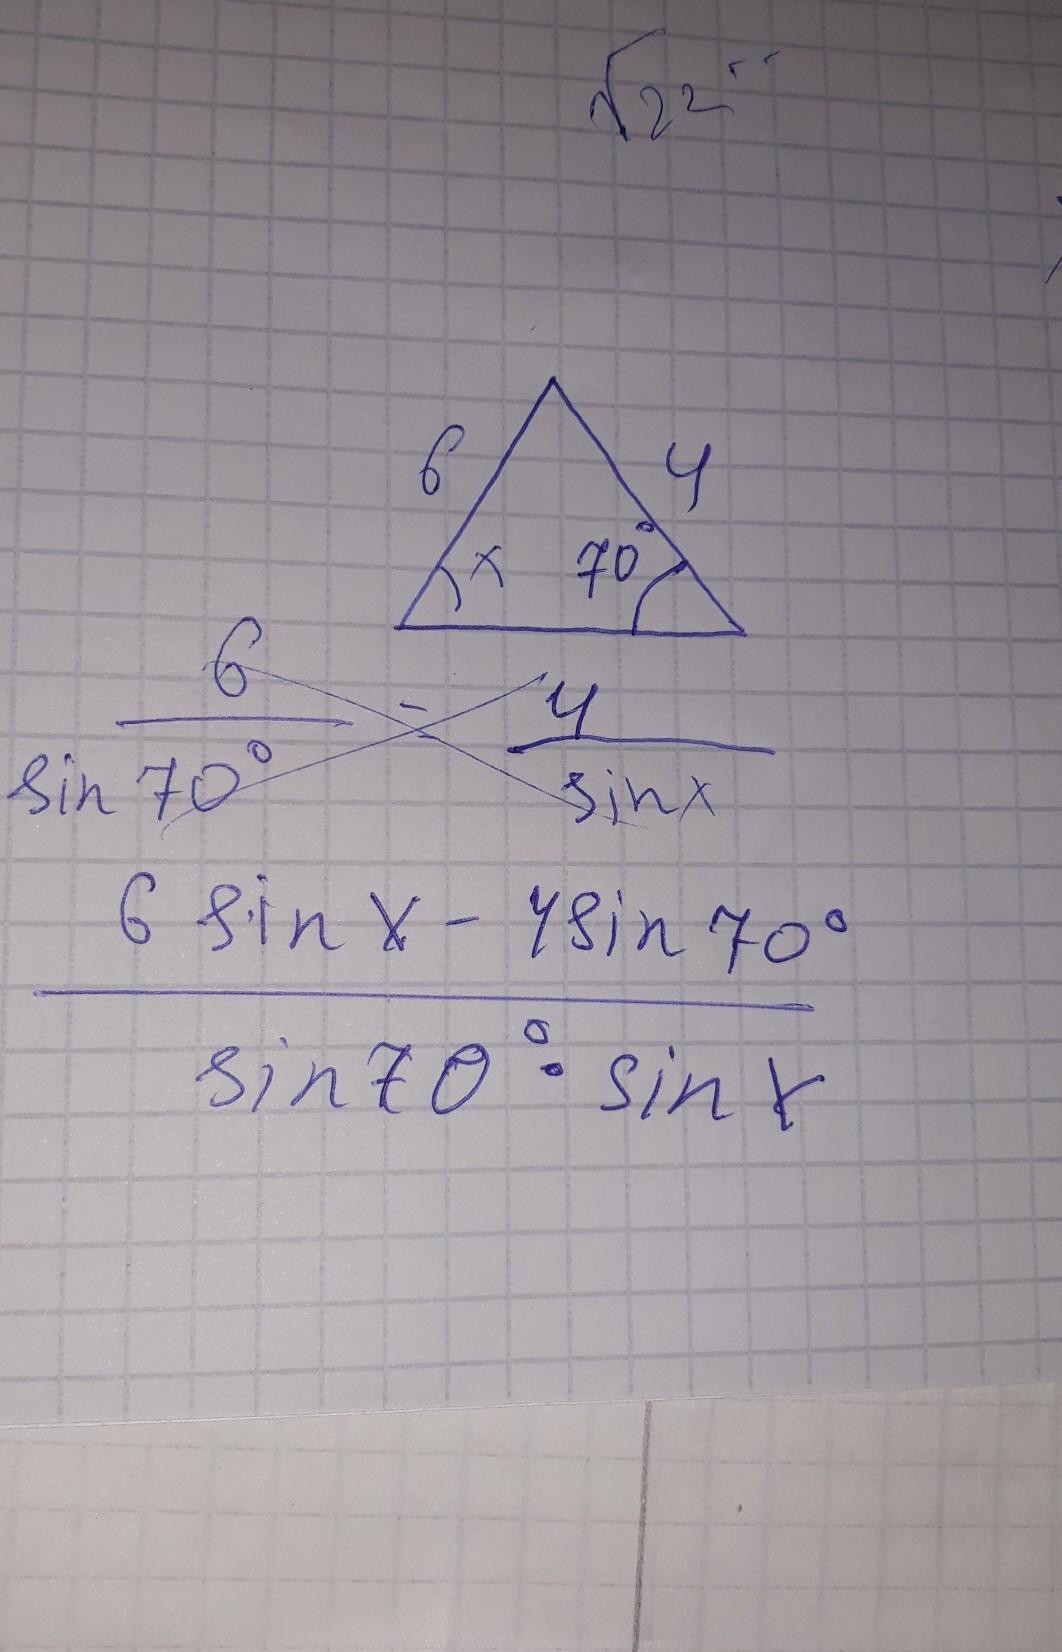 √22
6 4
x 70°
6 = 4
sin 70° sin x
6 sin x - 4 sin 70°
sin 70° · sin x